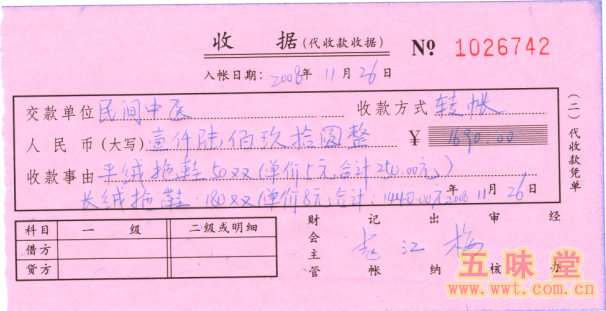 收 据(代收款收据) № 1026742
入帐日期:2008年11月26日
交款单位 民间中医 收款方式 转帐
人民币(大写) 壹仟陆佰玖拾圆整 ¥ 1690.00
收款事由 平绒拖鞋50双(单价5元,合计250.00元,)
长绒拖鞋:180双(单价8元,合计:1440.00元 2008年11月26日
(二)代收款凭单
科目 一 级 二级或明细
借方
贷方
财会主管 记帐 出纳 审核 经办
赵江梅
五味堂
www.wwt.com.cn